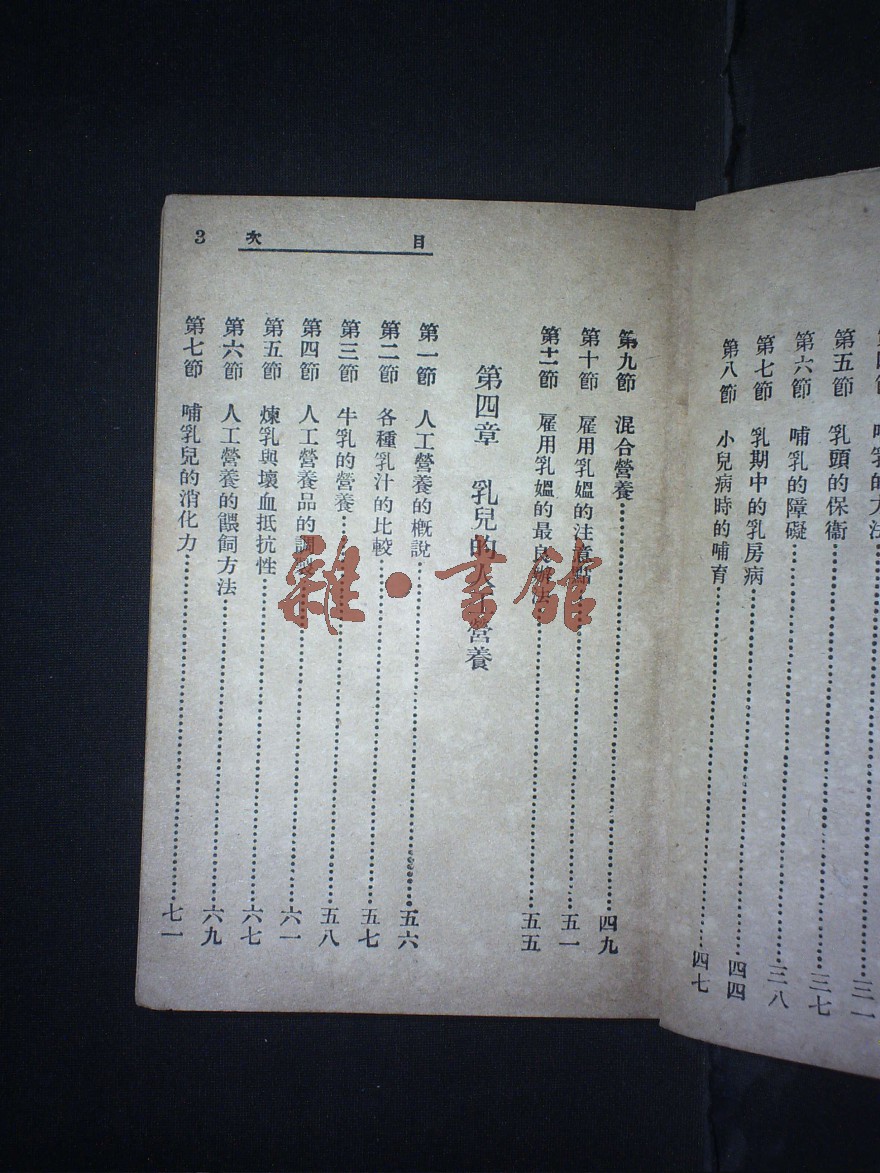 乳的方法 三一
第五節 乳頭的保衞 三七
第六節 哺乳的障礙 三八
第七節 乳期中的乳房病 四四
第八節 小兒病時的哺育 四七
目次 3
第九節 混合營養 四九
第十節 雇用乳媼的注意點 五一
第十一節 雇用乳媼的最良辦法 五五
第四章 乳兒的人工營養
第一節 人工營養的概說 五六
第二節 各種乳汁的比較 五七
第三節 牛乳的營養 五八
第四節 人工營養品的調製 六一
第五節 煉乳與壞血抵抗性 六七
第六節 人工營養的餵飼方法 六九
第七節 哺乳兒的消化力 七一
雜·書館